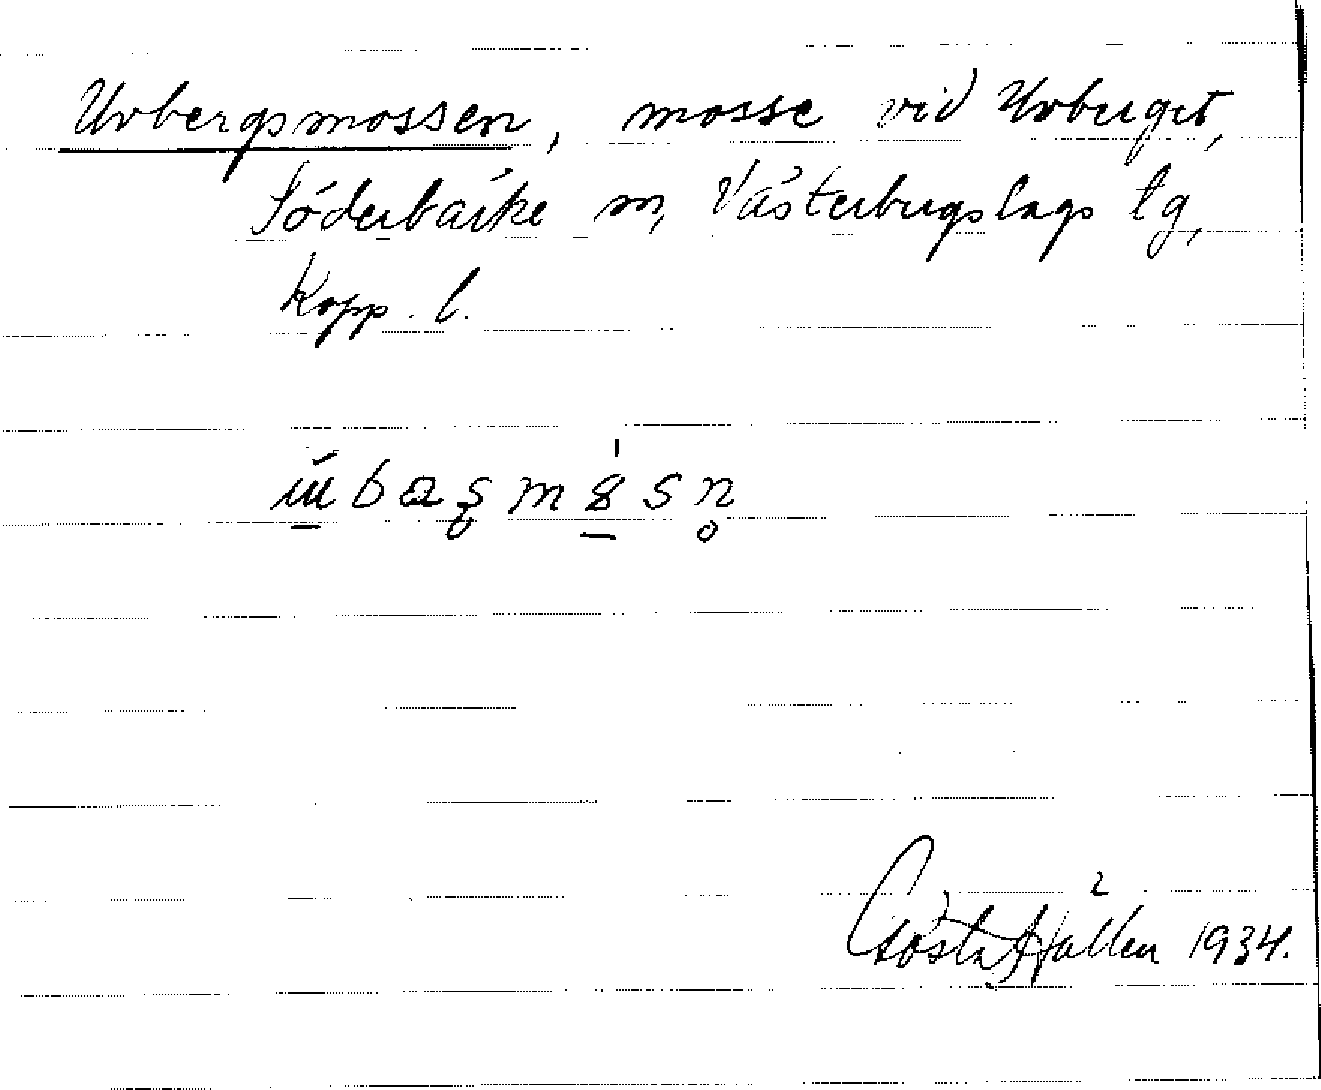 Urbergsmossen, mosse vid Urberget,
Söderbärke sn, Västerbergslags tg,
Kopp. l.
Gösta Hallén 1934.